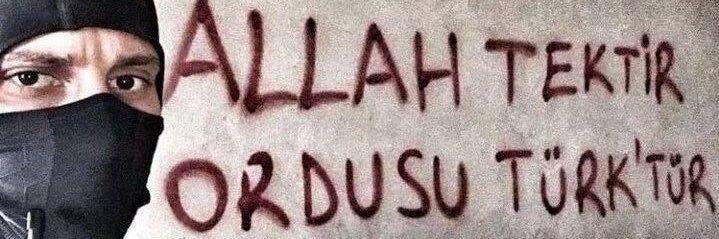 ALLAH TEKTİR
ORDUSU TÜRK'TÜR